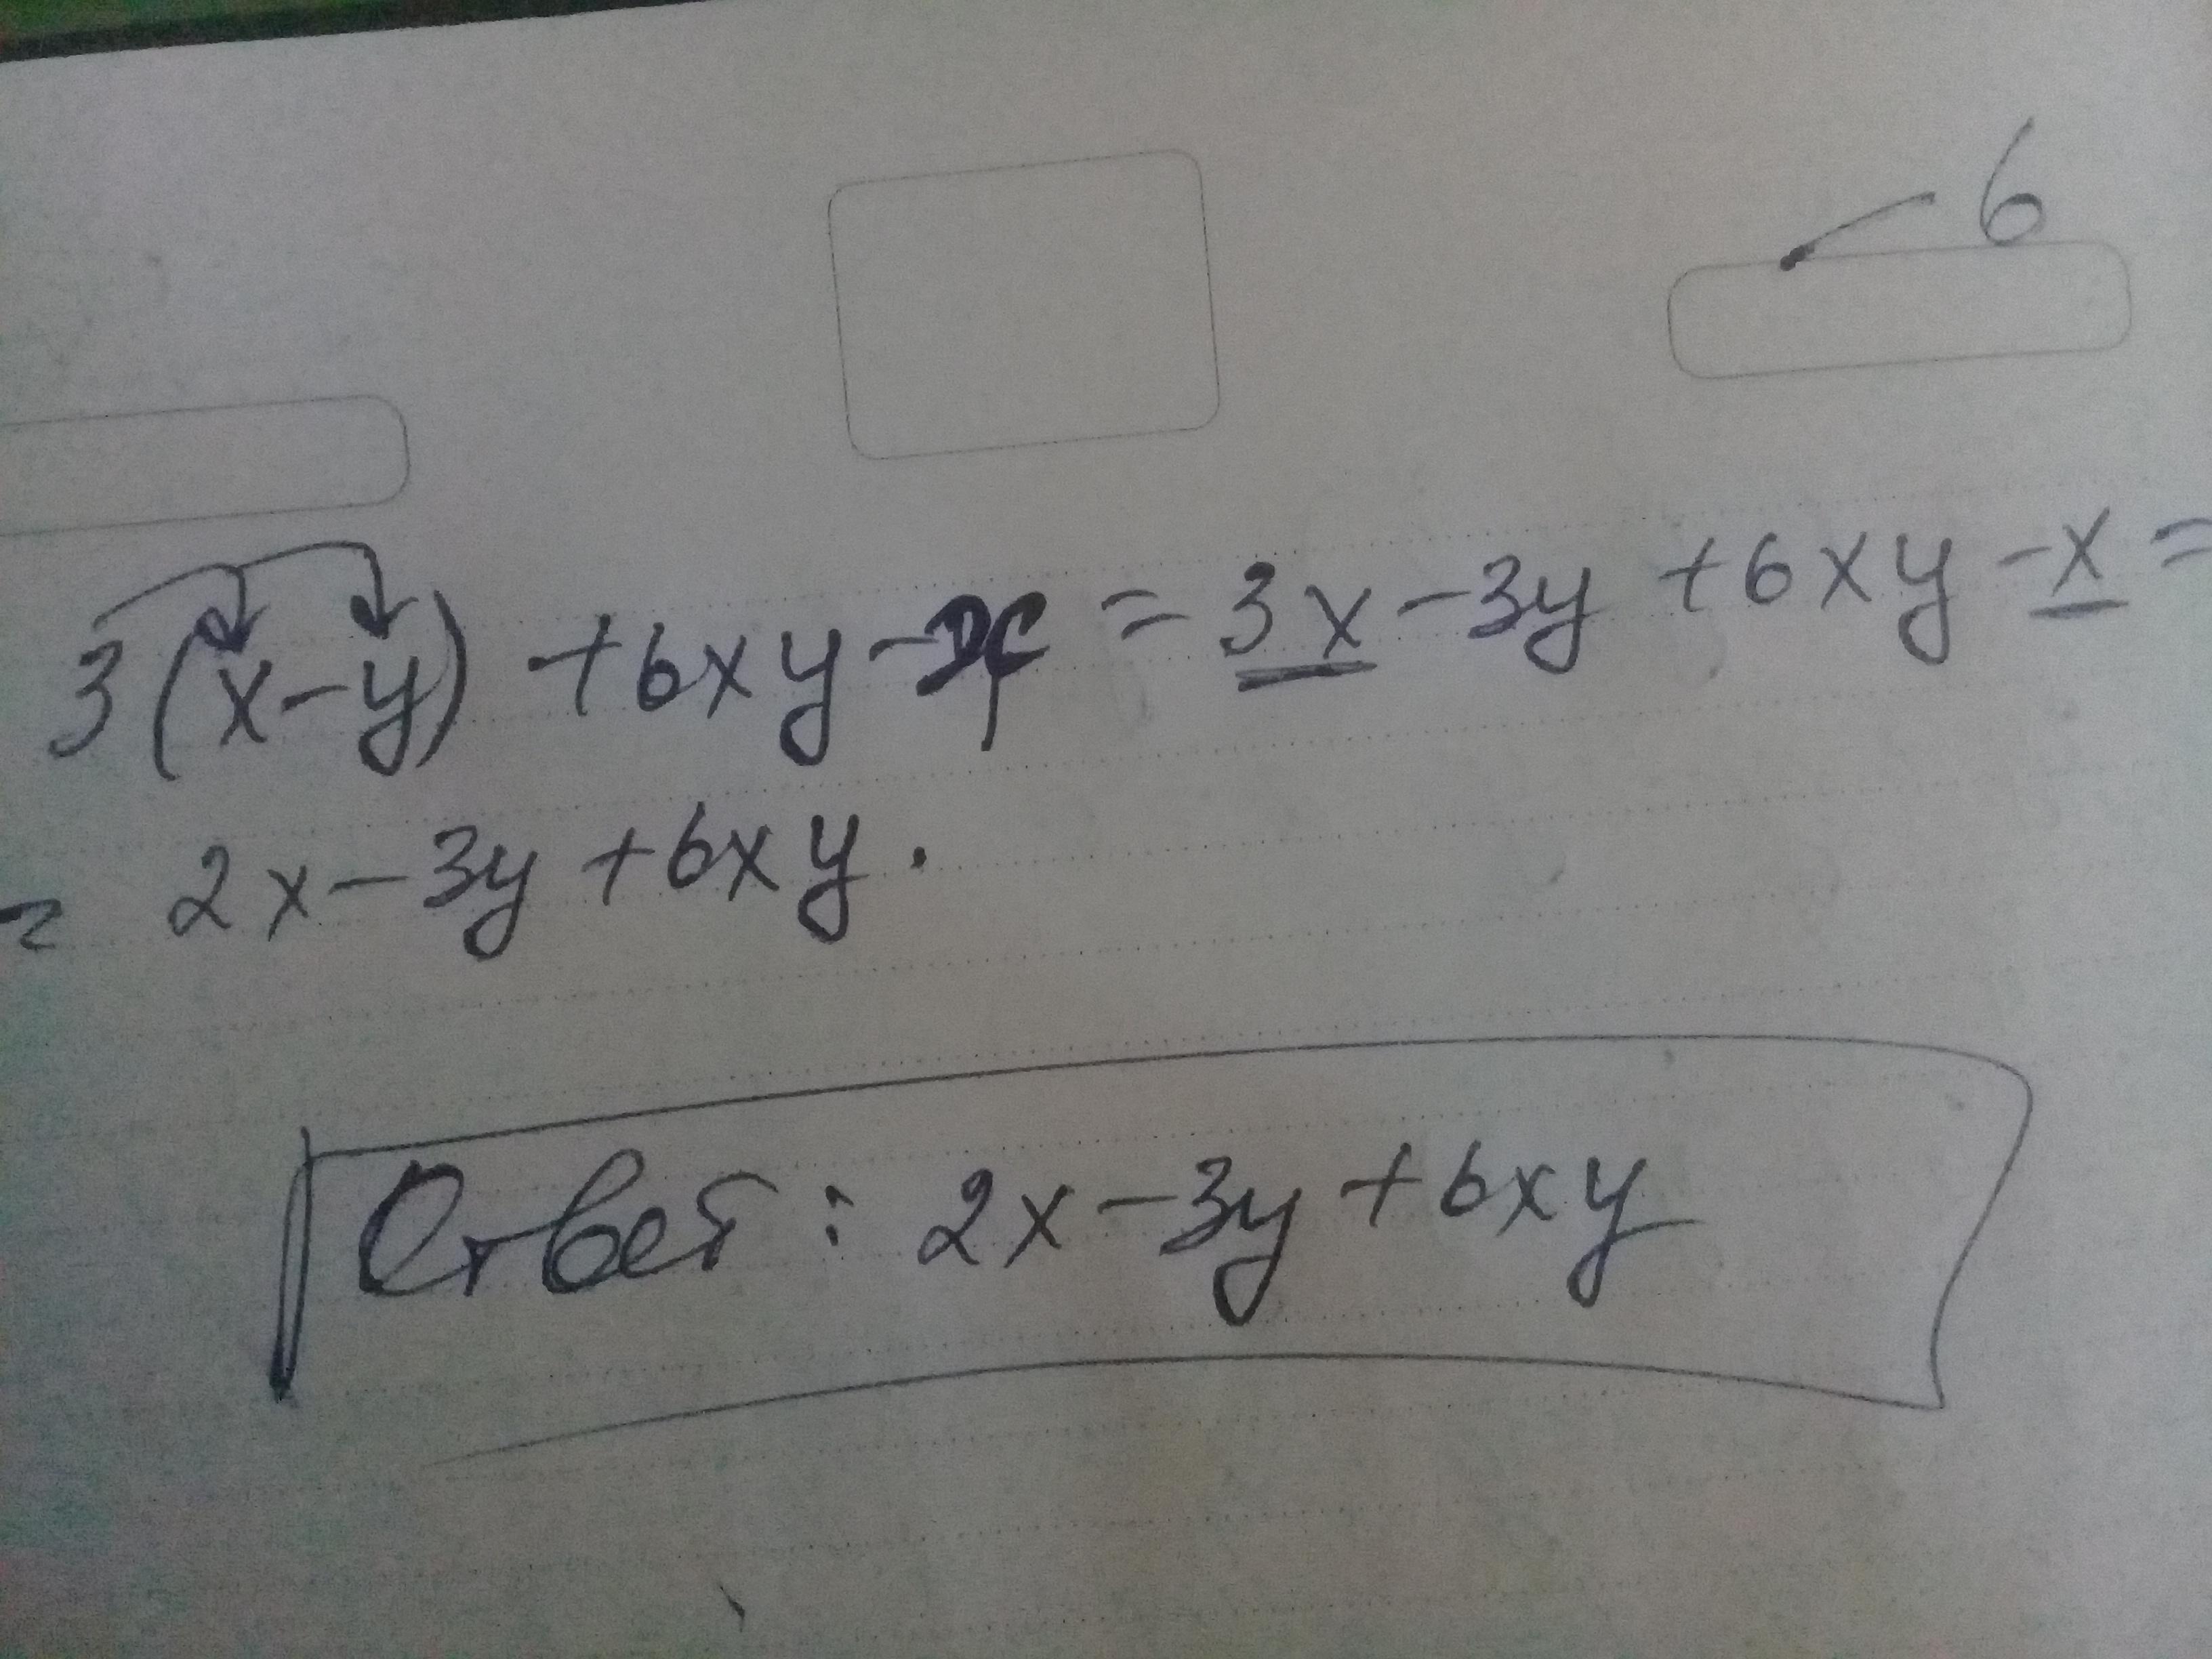 6
3(x-y)+6xy-x=3x-3y+6xy-x=
= 2x-3y+6xy.
Ответ: 2x-3y+6xy